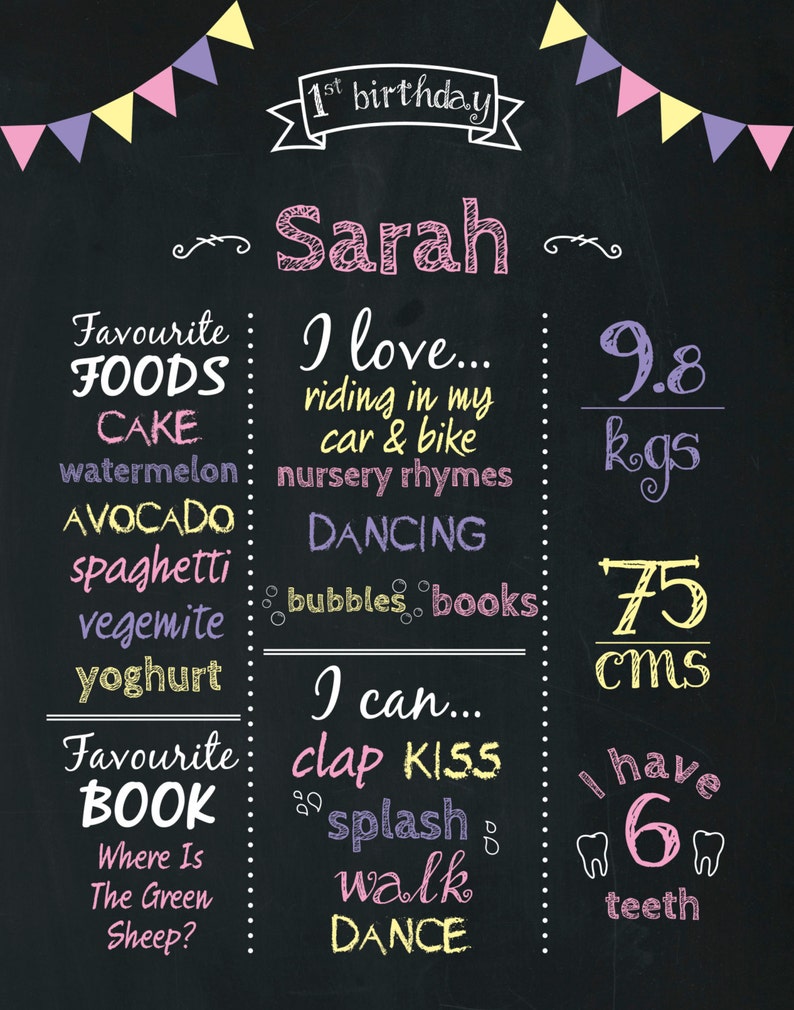 1st birthday
Sarah
Favourite
FOODS
CAKE
watermelon
AVOCADO
spaghetti
vegemite
yoghurt
Favourite
BOOK
Where Is
The Green
Sheep?
I love...
riding in my
car & bike
nursery rhymes
DANCING
bubbles books
I can...
clap KISS
splash
walk
DANCE
9.8
kgs
75
cms
I have
6
teeth